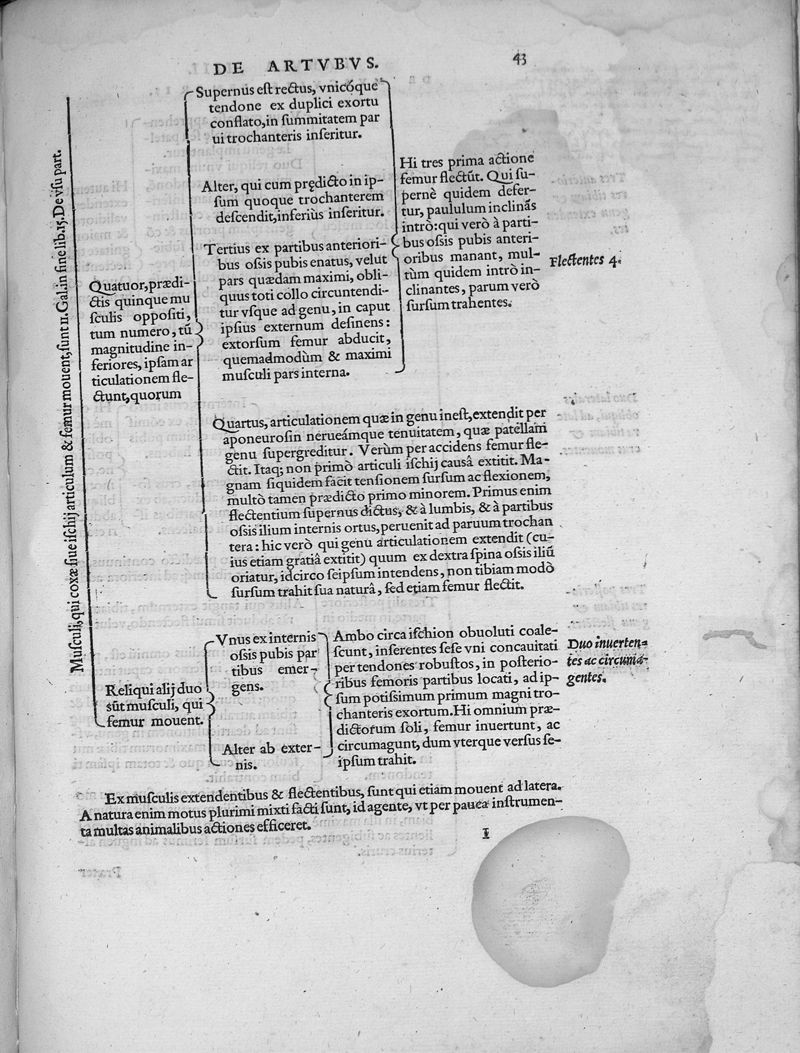 DE ARTVBVS. 43
Muſculi, qui coxæ ſiue iſchij articulum & femur mouent, ſunt 11. Gal. in fine lib. 15. De vſu part.
Quatuor, prædi-
ctis quinque mu
ſculis oppoſiti,
tum numero, tũ
magnitudine in-
feriores, ipſam ar
ticulationem fle-
ctunt, quorum
Supernus eſt rectus, vnicóque
tendone ex duplici exortu
conflato, in ſummitatem par
ui trochanteris inſeritur.
Alter, qui cum prędicto in ip-
ſum quoque trochanterem
deſcendit, inferiùs inſeritur.
Tertius ex partibus anteriori-
bus oſsis pubis enatus, velut
pars quædam maximi, obli-
quus toti collo circuntendi-
tur vſque ad genu, in caput
ipſius externum deſinens:
extorſum femur abducit,
quemadmodùm & maximi
muſculi pars interna.
Hi tres prima actione
femur flectũt. Qui ſu-
pernè quidem defer-
tur, paululum inclinãs
intrò: qui verò à parti-
bus oſsis pubis anteri-
oribus manant, mul-
tùm quidem intrò in-
clinantes, parum verò
ſurſum trahentes.
Flectentes 4.
Quartus, articulationem quæ in genu ineſt, extendit per
aponeuroſin nerueámque tenuitatem, quæ patellam
genu ſupergreditur. Verùm per accidens femur fle-
ctit. Itaq; non primò articuli iſchij causâ extitit. Ma-
gnam ſiquidem facit tenſionem ſurſum ac flexionem,
multò tamen prædicto primo minorem. Primus enim
flectentium ſupernus dictus, & à lumbis, & à partibus
oſsis ilium internis ortus, peruenit ad paruum trochan
tera: hic verò qui genu articulationem extendit (cu-
ius etiam gratiâ extitit) quum ex dextra ſpina oſsis iliũ
oriatur, idcirco ſeipſum intendens, non tibiam modò
ſurſum trahit ſua naturâ, ſed etiam femur flectit.
Reliqui alij duo
sũt muſculi, qui
femur mouent.
Vnus ex internis
oſsis pubis par
tibus emer-
gens.
Alter ab exter-
nis.
Ambo circa iſchion obuoluti coale-
ſcunt, inſerentes ſeſe vni concauitati
per tendones robuſtos, in poſterio-
ribus femoris partibus locati, ad ip-
ſum potiſsimum primum magni tro-
chanteris exortum. Hi omnium præ-
dictorum ſoli, femur inuertunt, ac
circumagunt, dum vterque verſus ſe-
ipſum trahit.
Duo inuerten-
tes ac circuma-
gentes.
Ex muſculis extendentibus & flectentibus, ſunt qui etiam mouent ad latera.
A natura enim motus plurimi mixti facti ſunt, id agente, vt per pauca inſtrumen-
ta multas animalibus actiones efficeret.
I